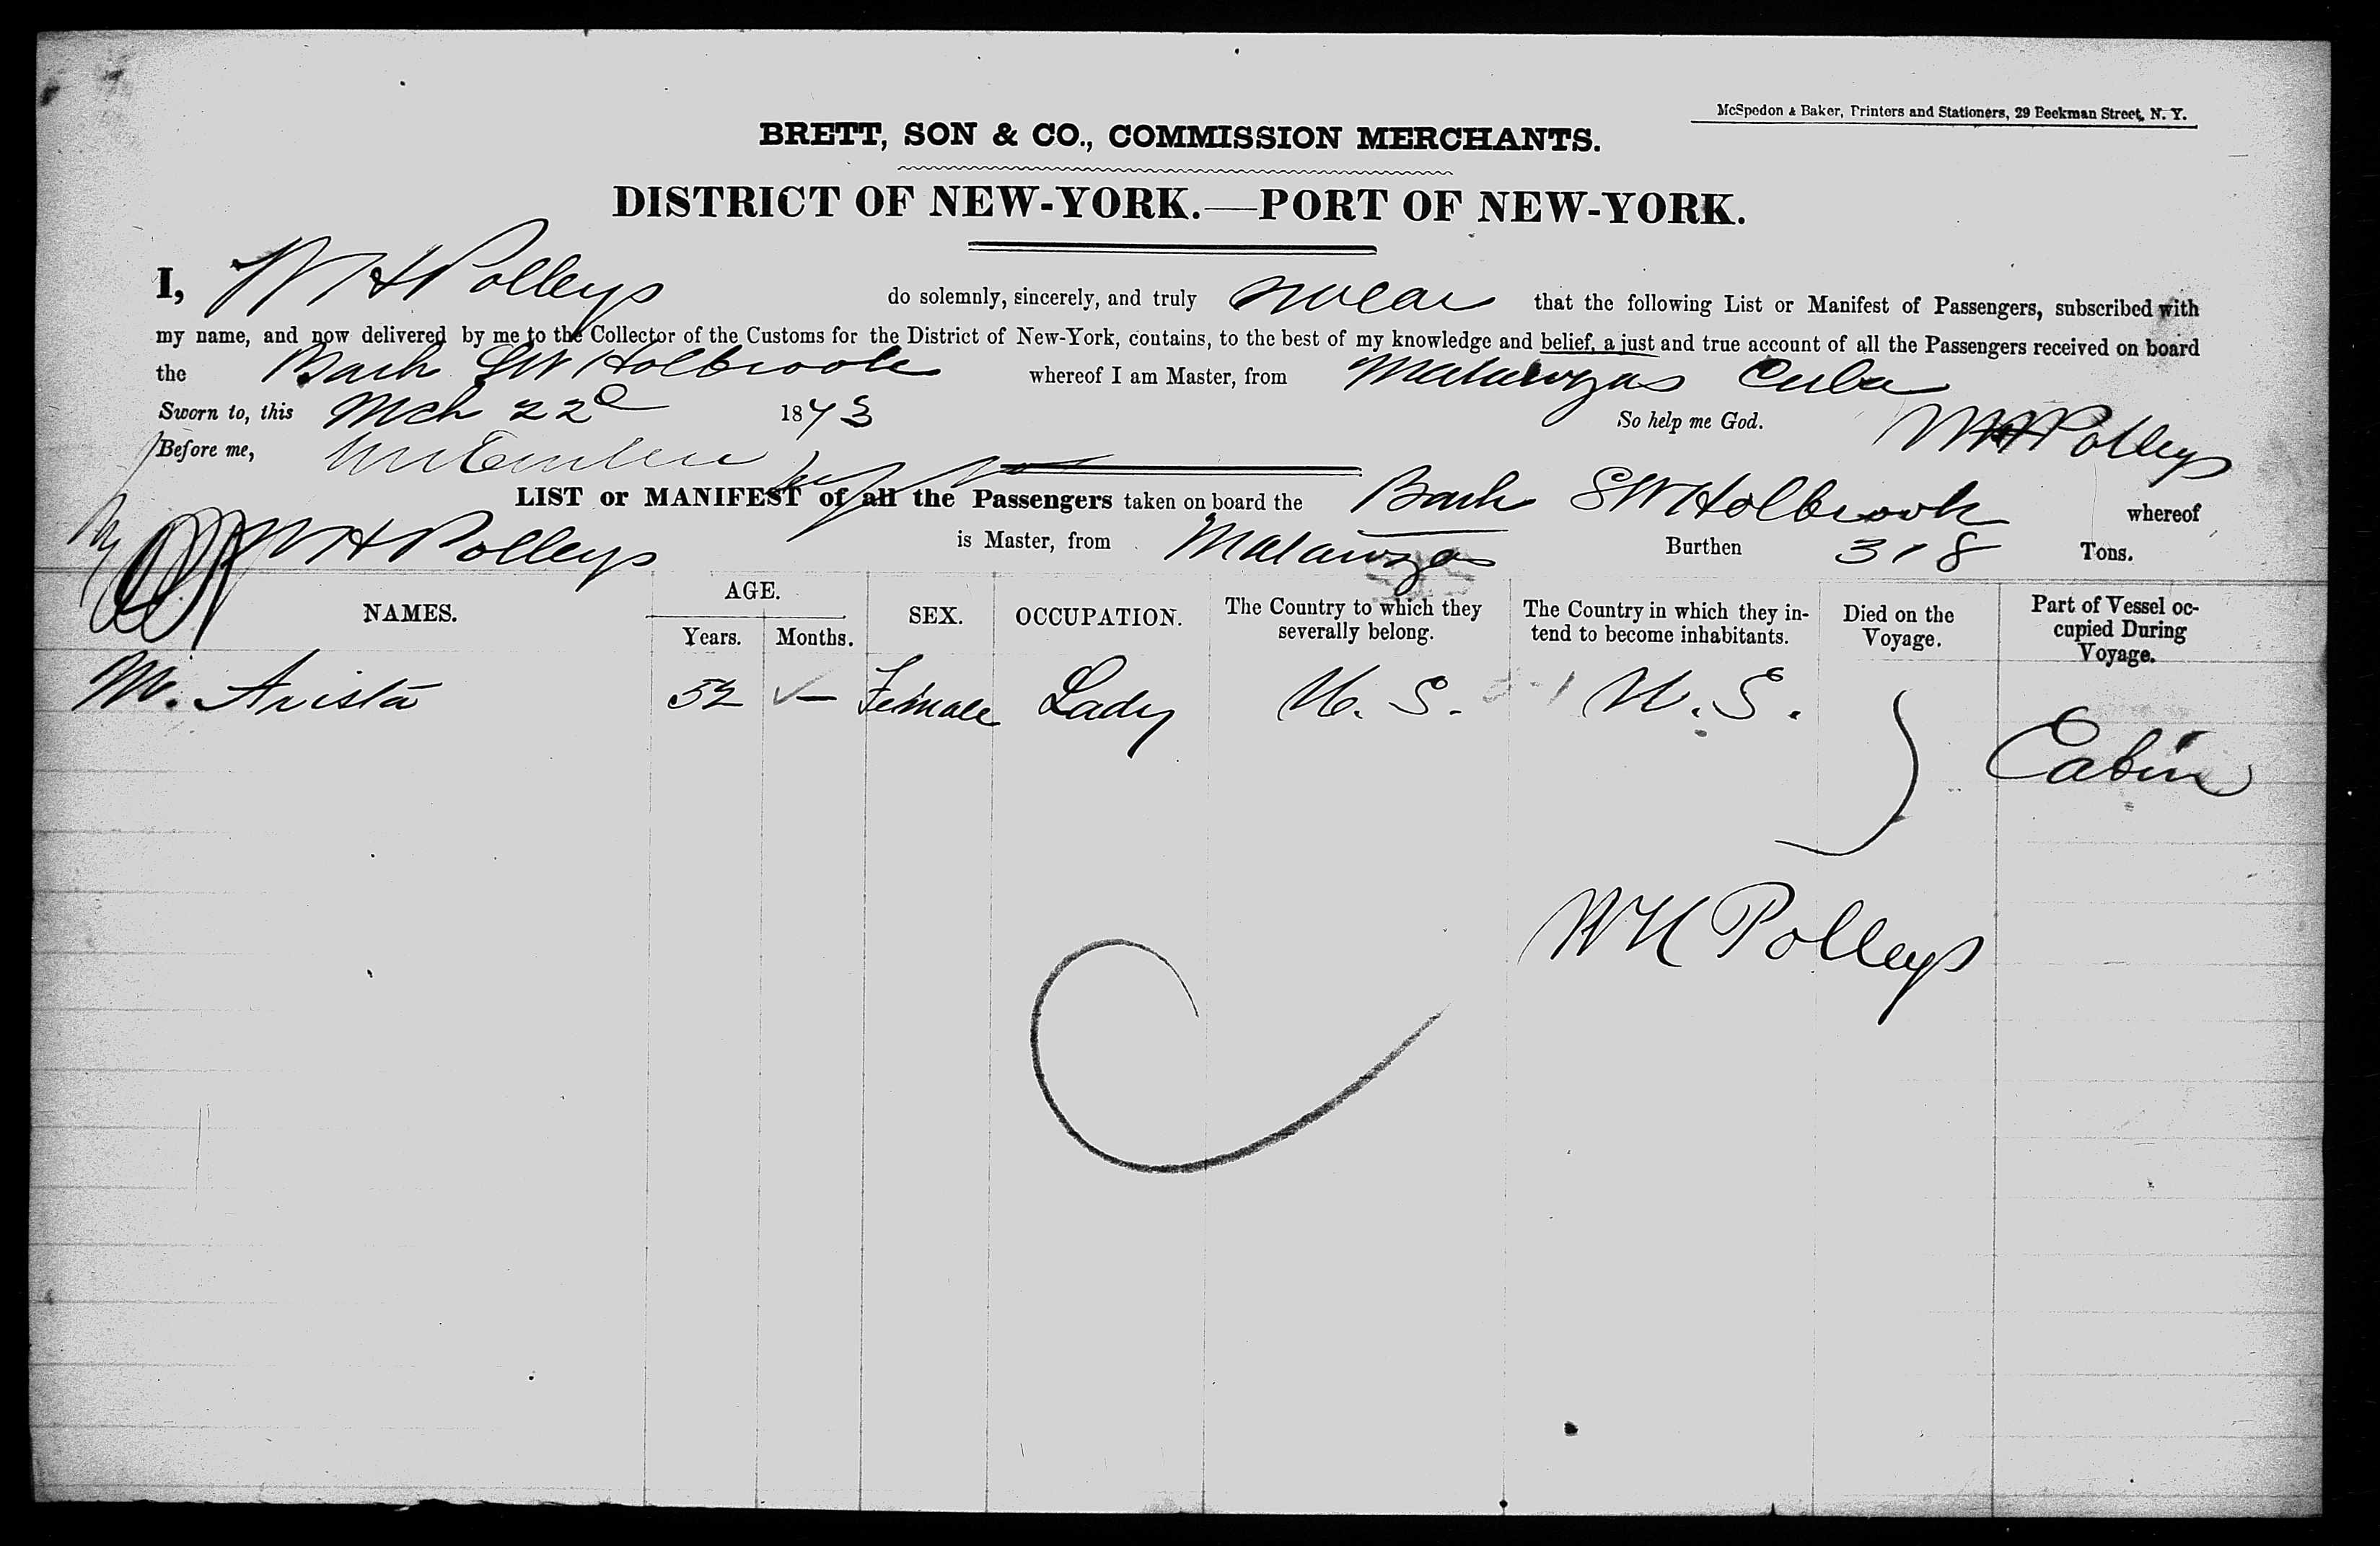 McSpedon & Baker, Printers and Stationers, 29 Beekman Street, N. Y.
BRETT, SON & CO., COMMISSION MERCHANTS.
DISTRICT OF NEW-YORK.—PORT OF NEW-YORK.
I, W H Polleys do solemnly, sincerely, and truly swear that the following List or Manifest of Passengers, subscribed with
my name, and now delivered by me to the Collector of the Customs for the District of New-York, contains, to the best of my knowledge and belief, a just and true account of all the Passengers received on board
the Bark S W Holbrook whereof I am Master, from Matanzas Cuba
Sworn to, this Mch 22d 1873 So help me God. W H Polleys
Before me,
LIST or MANIFEST of all the Passengers taken on board the Bark S W Holbrook whereof
W H Polleys is Master, from Matanzas Burthen 318 Tons.
NAMES. AGE. Years. Months. SEX. OCCUPATION. The Country to which they severally belong. The Country in which they intend to become inhabitants. Died on the Voyage. Part of Vessel occupied During Voyage.
M. Arista 52 — Female Lady U. S. U. S. Cabin
W H Polleys